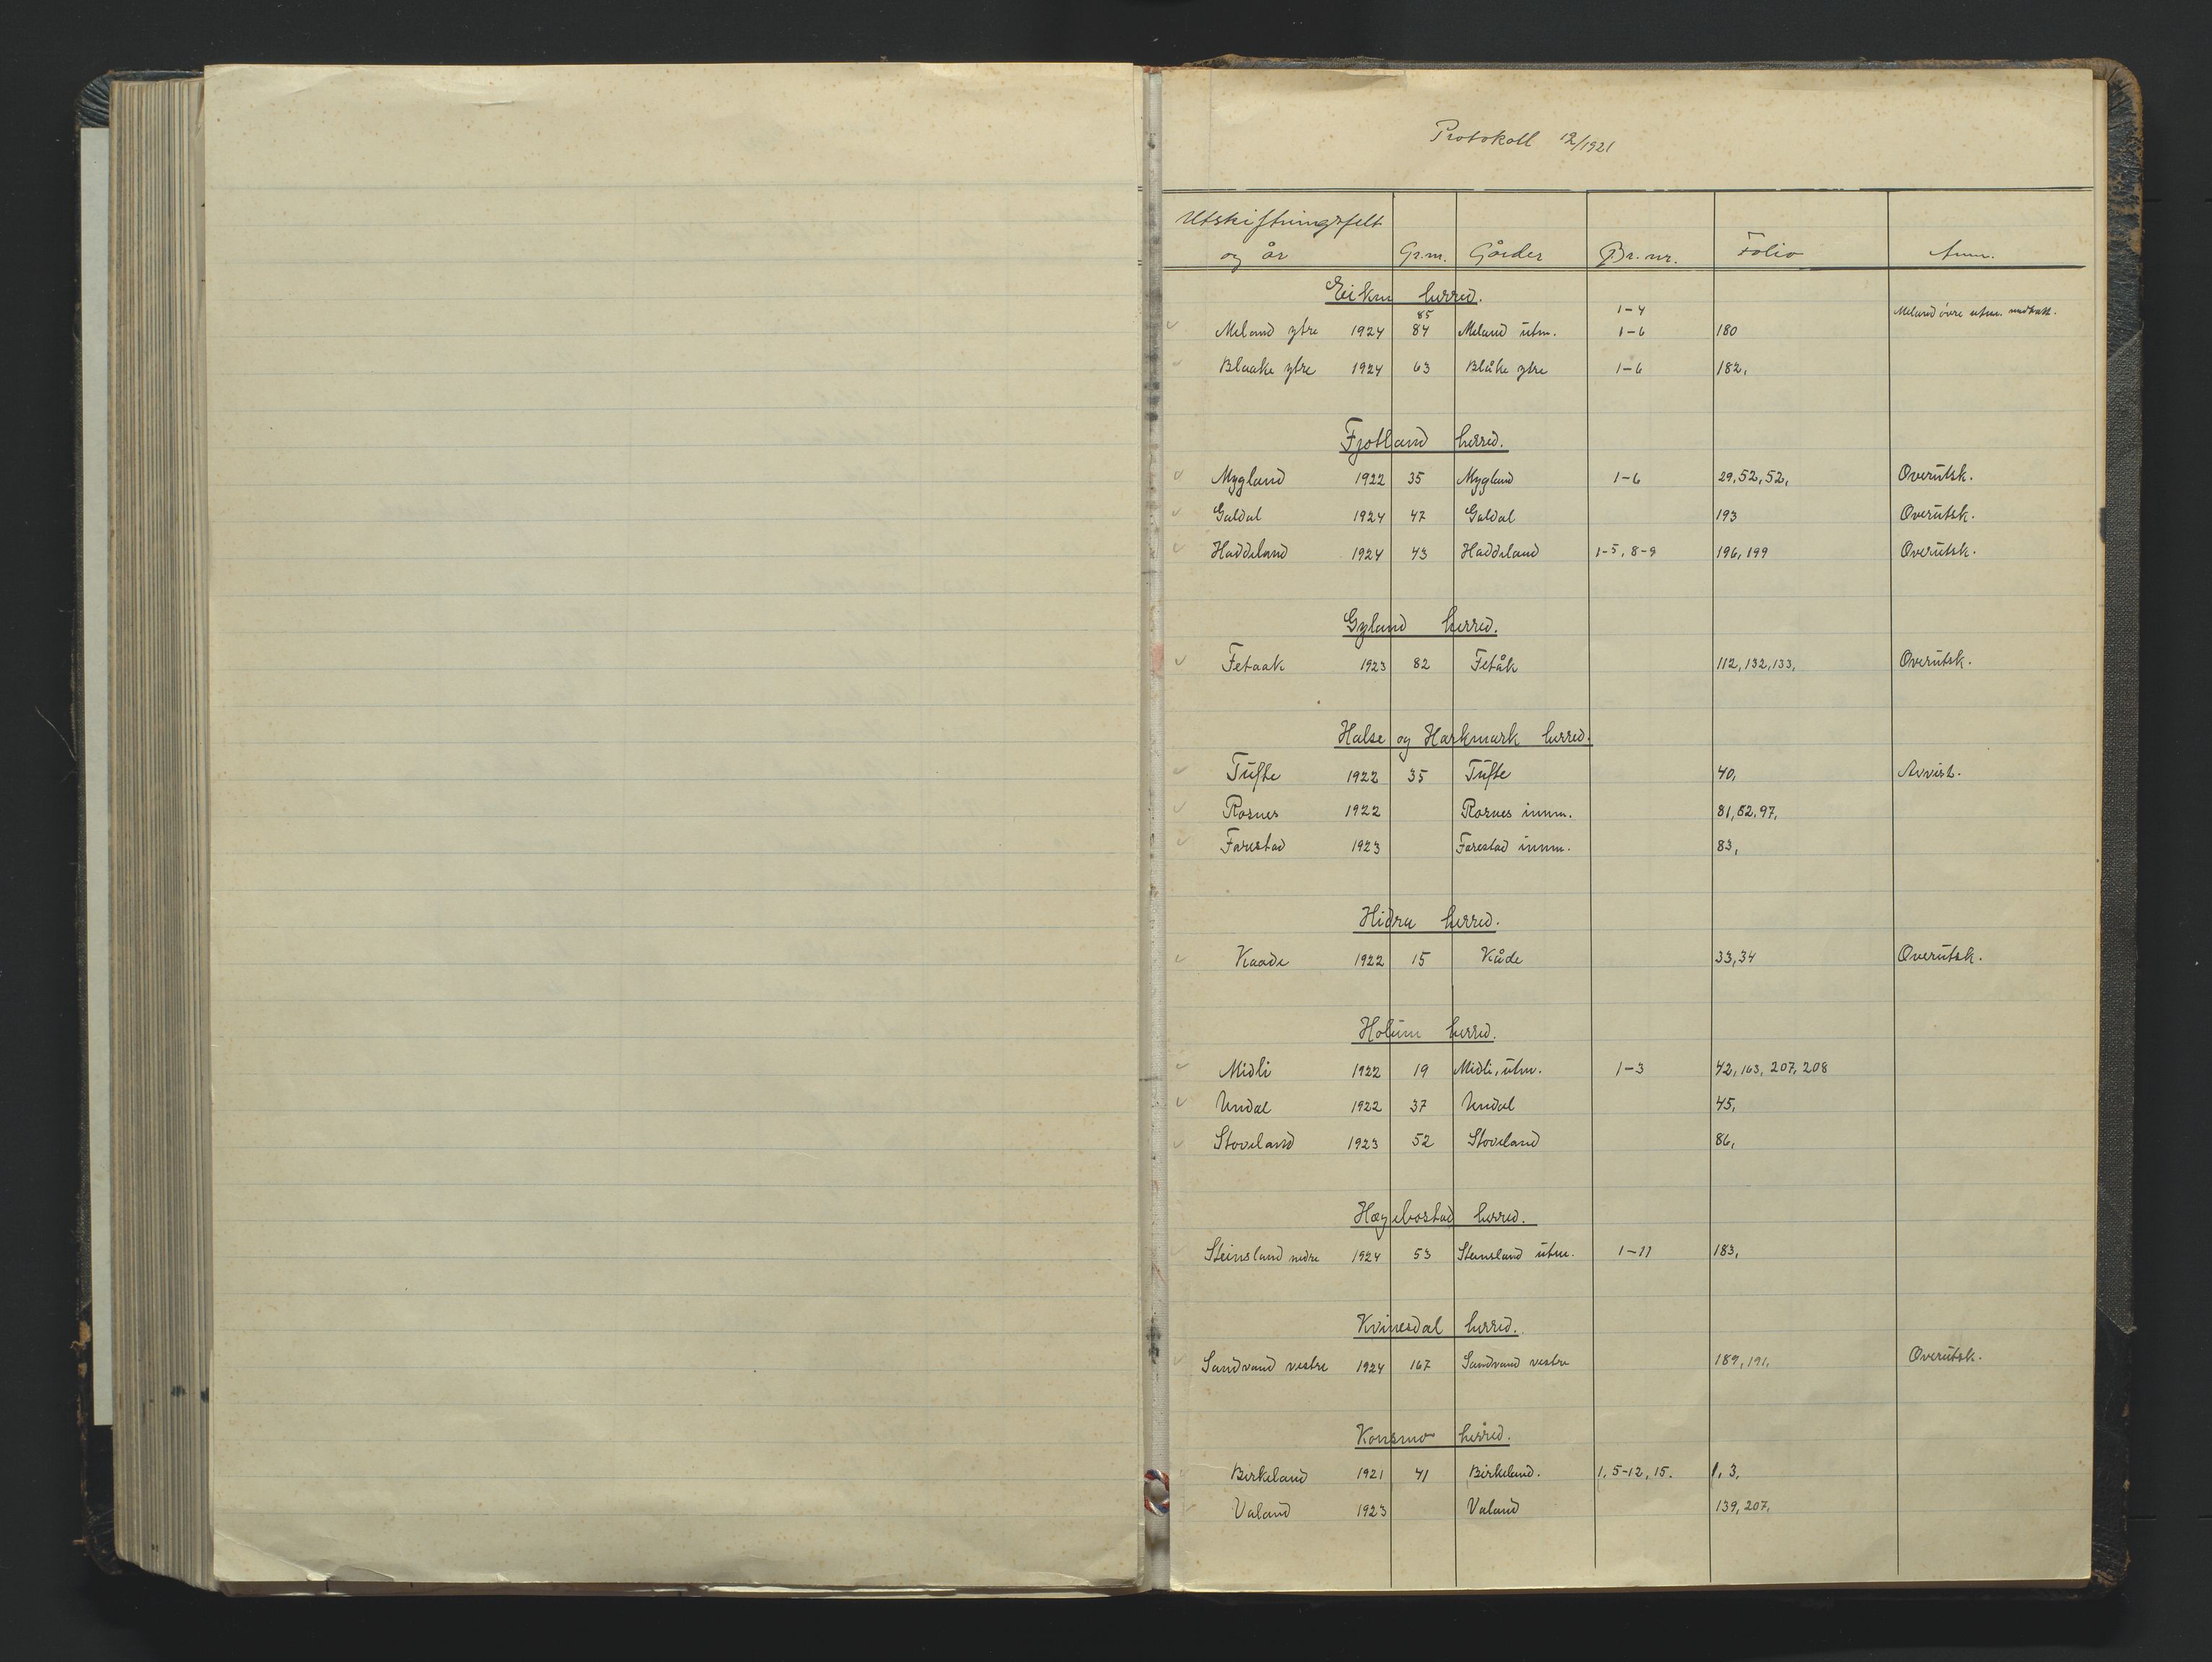 Protokoll 12/1921
Utskiftningsfelt
og år Gr.nr. Gårder Br. nr. Folio Anm.
Eiken herred.
85 1-4 Meland övre utm. undtatt.
Meland ytre 1924 84 Meland utm. 1-6 180
Blaake ytre 1924 63 Blåke ytre 1-6 182,
Fjotland herred.
Mygland 1922 35 Mygland 1-6 29, 52, 52, Overutsk.
Galdal 1924 47 Galdal 193 Overutsk.
Haddeland 1924 43 Haddeland 1-5, 8-9 196, 199 Overutsk.
Gyland herred.
Fetaak 1923 82 Fetåk 112, 132, 133, Overutsk.
Halse og Harkmark herred.
Tufte 1922 35 Tufte 40, Avvist.
Rosnes 1922 Rosnes innm. 81, 82, 97,
Farestad 1923 Farestad innm. 83,
Hidra herred.
Kaade 1922 15 Kåde 33, 34 Overutsk.
Holum herred.
Midli 1922 19 Midli, utm. 1-3 42, 163, 207, 208
Undal 1922 37 Undal 45,
Stoveland 1923 52 Stoveland 86,
Hægebostad herred.
Steinsland nedre 1924 53 Steinsland utm. 1-11 183,
Kvinesdal herred.
Sandvand vestre 1924 167 Sandvand vestre 189, 191, Overutsk.
Konsmo herred.
Birkeland 1921 41 Birkeland. 1, 5-12, 15. 1, 3,
Valand 1923 Valand 139, 207,